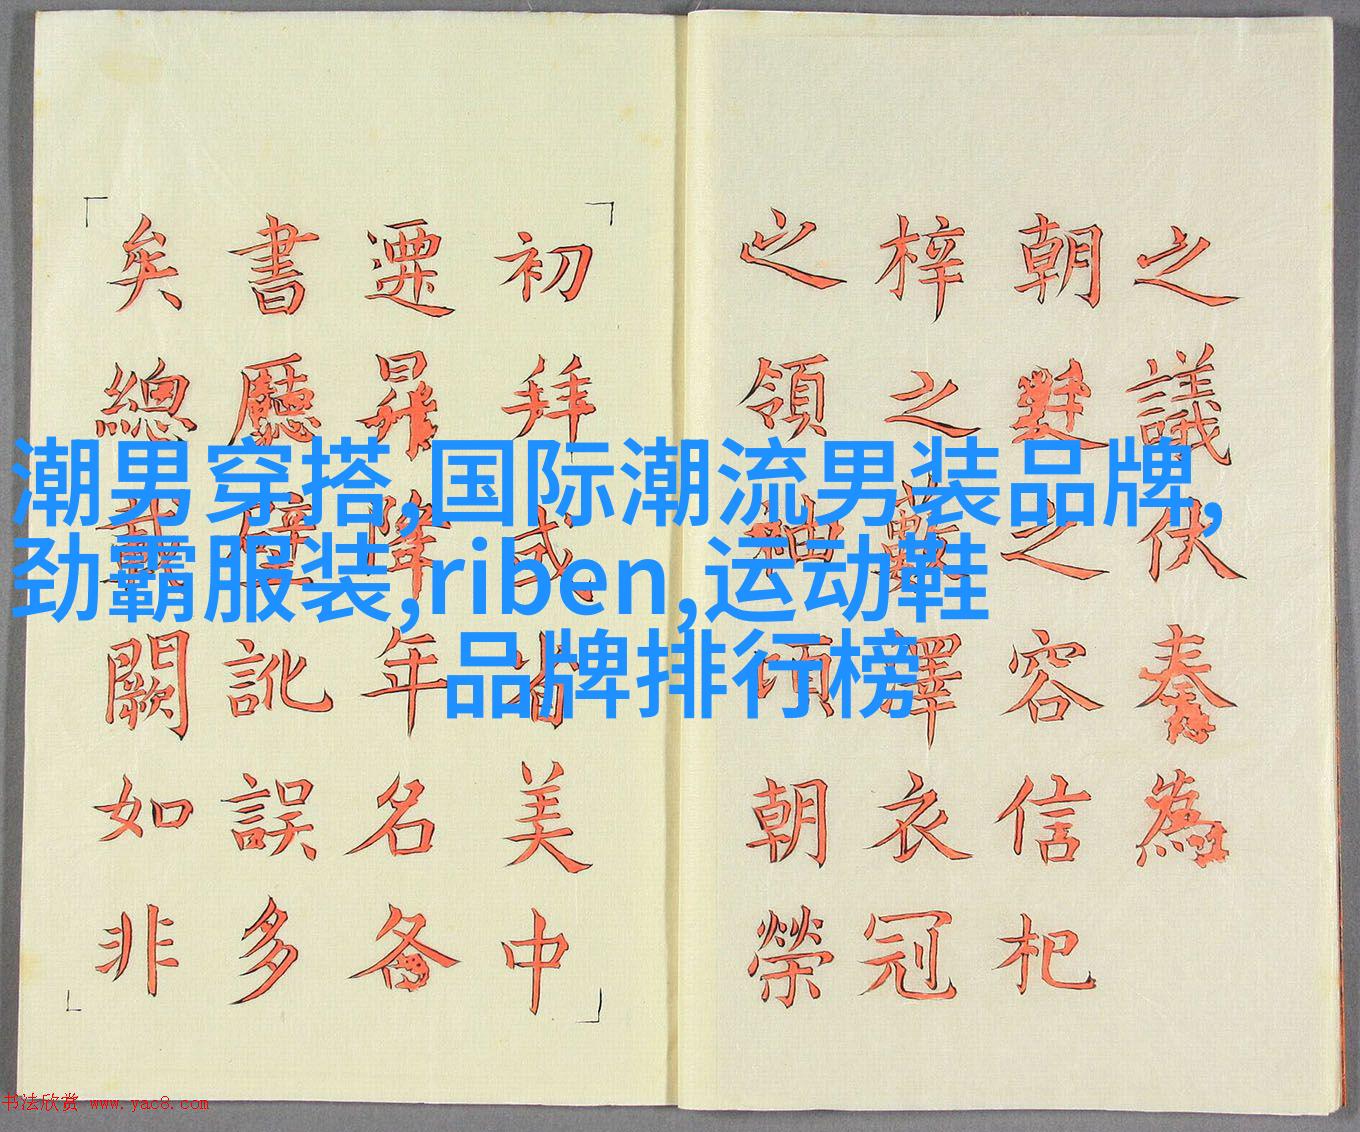 潮男穿搭,国际潮流男装品牌,
劲霸服装,riben,运动鞋
品牌排行榜
之議伏奏為
朝之容信杞
梓之衣冠
之領袖朝榮
初拜咸省美中
遷昇降年名备
書廳壁訛誤多
矣總載闕如非
书法欣赏 www.yac8.com